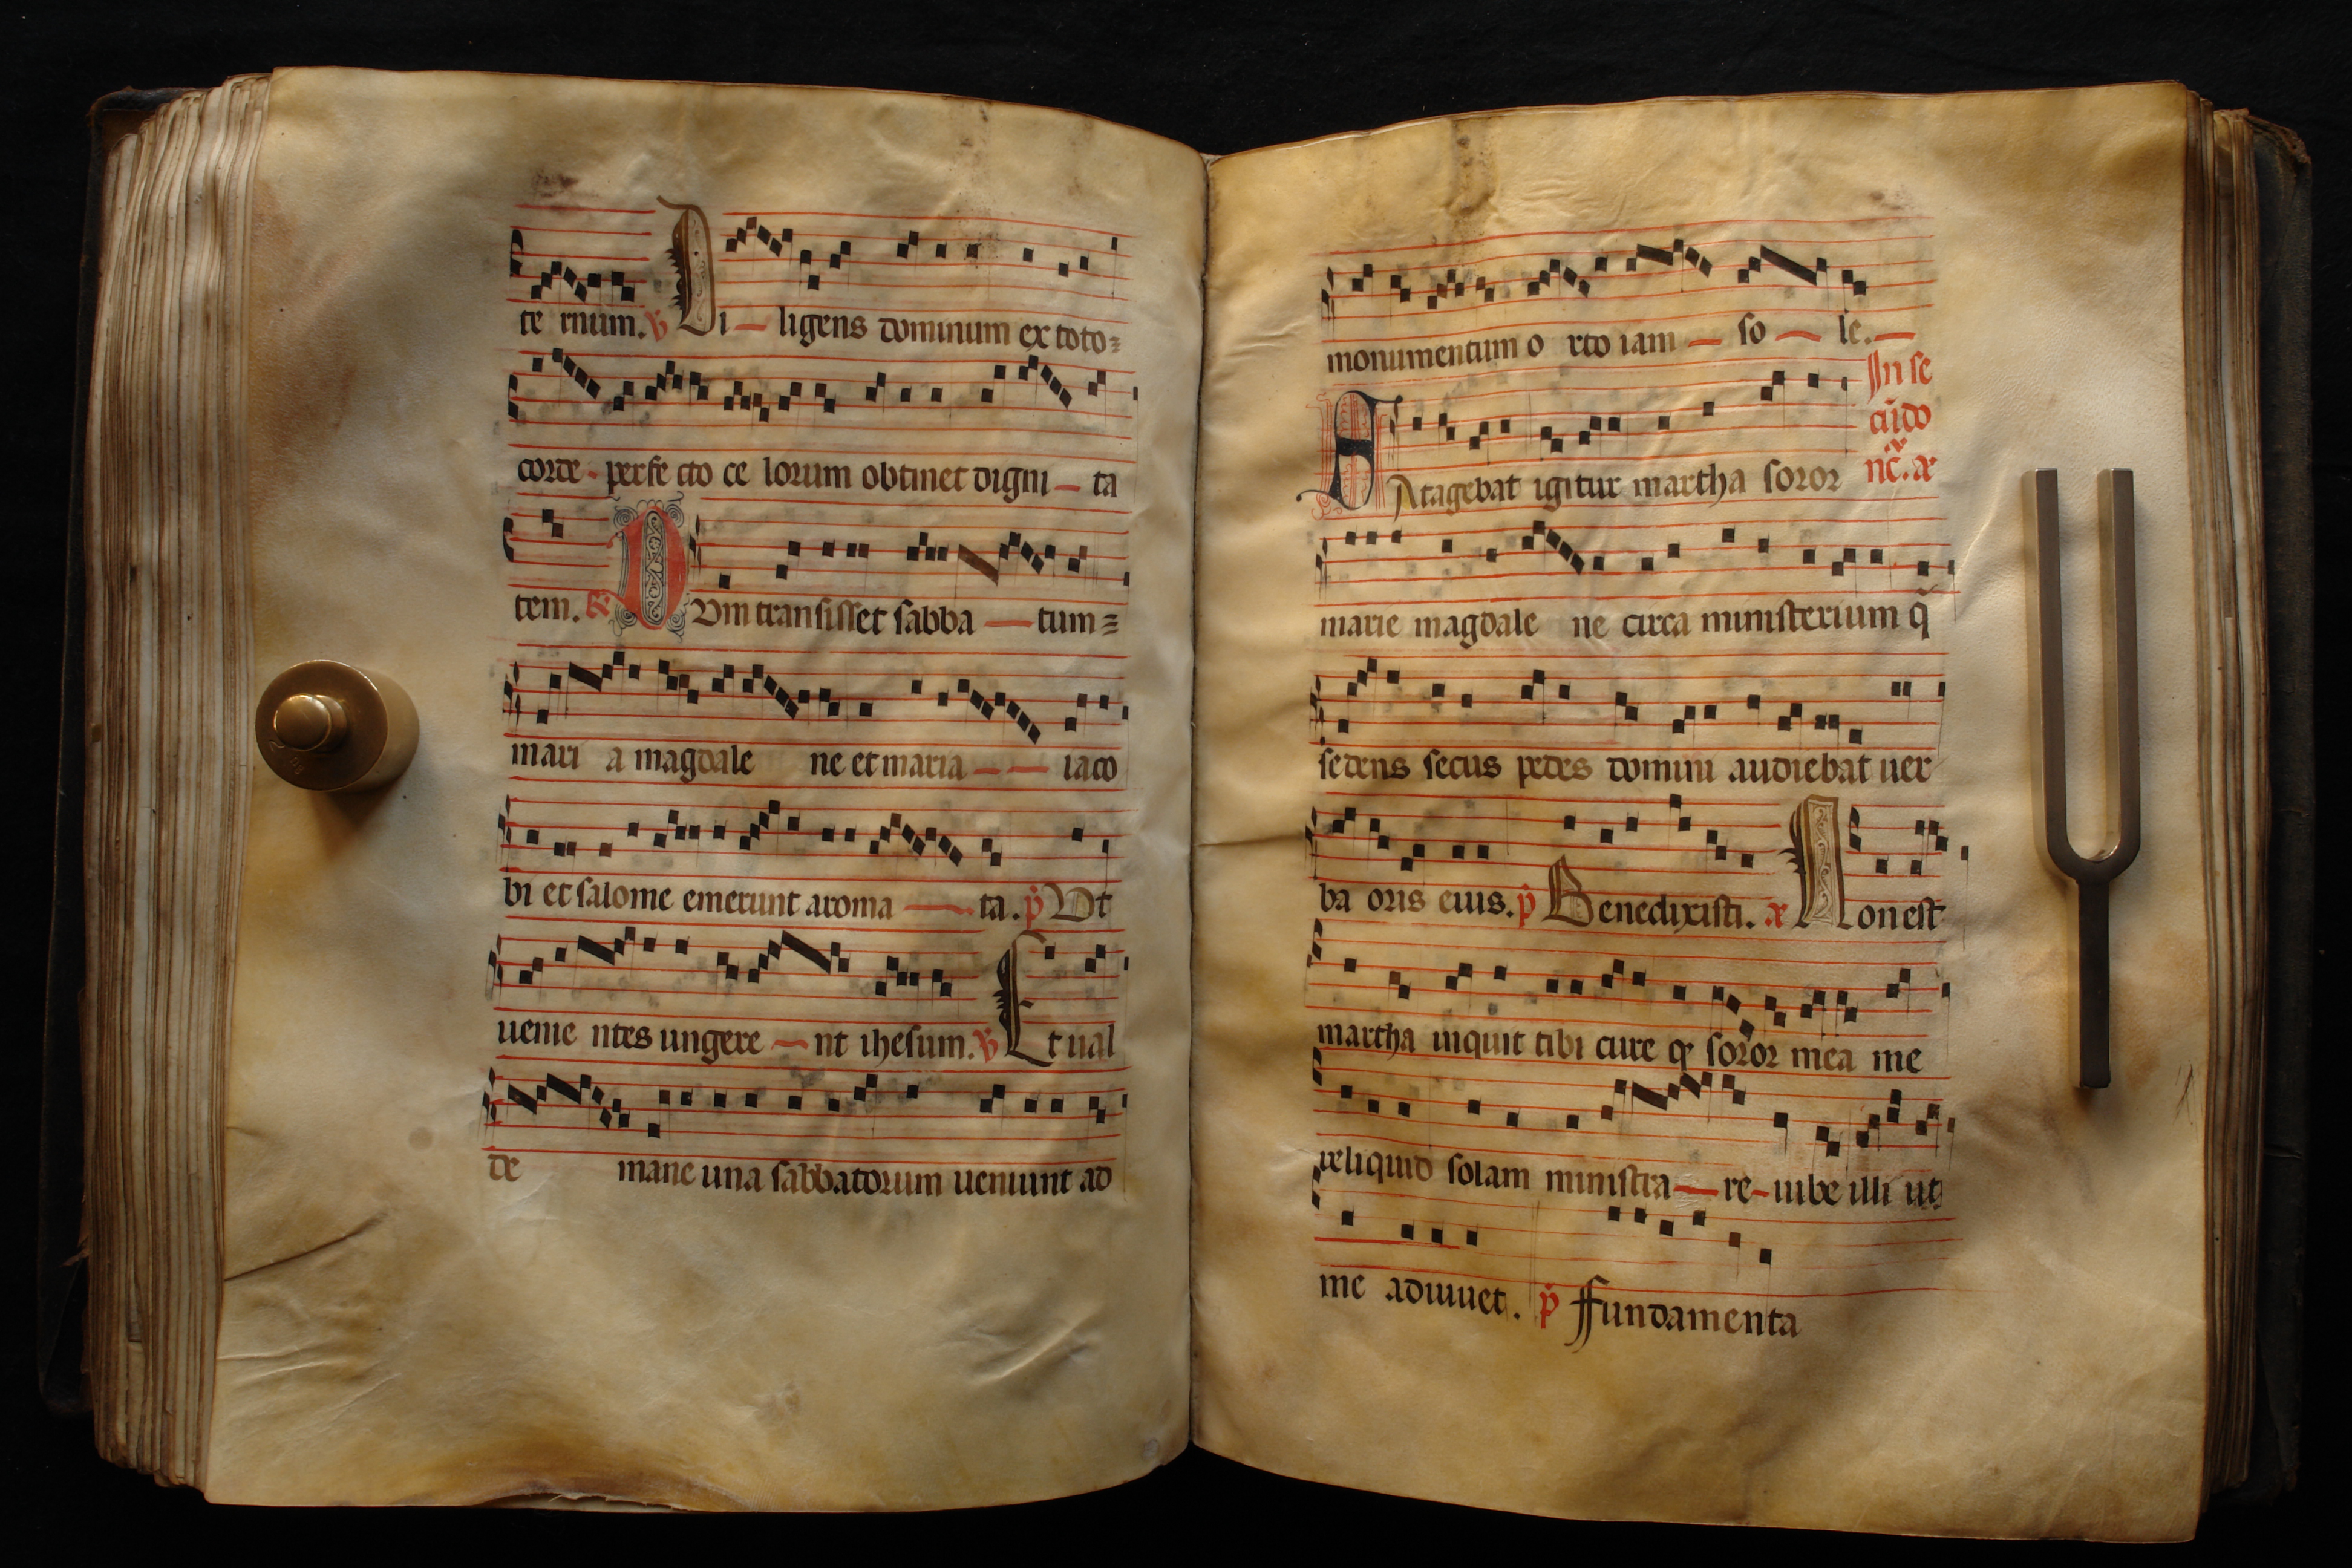 te rnum. ℣ Di — ligens dominum ex toto
corde - perfe cto ce lorum obtinet digni — ta
tem. ℟ D Vm transisset sabba — tum
mari a magdale ne et maria — — iaco
bi et salome emerunt aroma — ta. p̄ Vt
uenie ntes ungere — nt ihesum. ℣ Et ual
de mane una sabbatorum ueniunt ad
monumentum o rto iam — so — le. —
In se
cũdo
nc̃. a
S Atagebat igitur martha soror
marie magdale ne circa ministerium q̃
sedens secus pedes domini audiebat uer
ba oris eius. p̄ Benedixisti. a Non est
martha inquit tibi cure qꝛ soror mea me
reliquid solam ministra — re - iube illi ut
me adiuuet. p̄ Ffundamenta